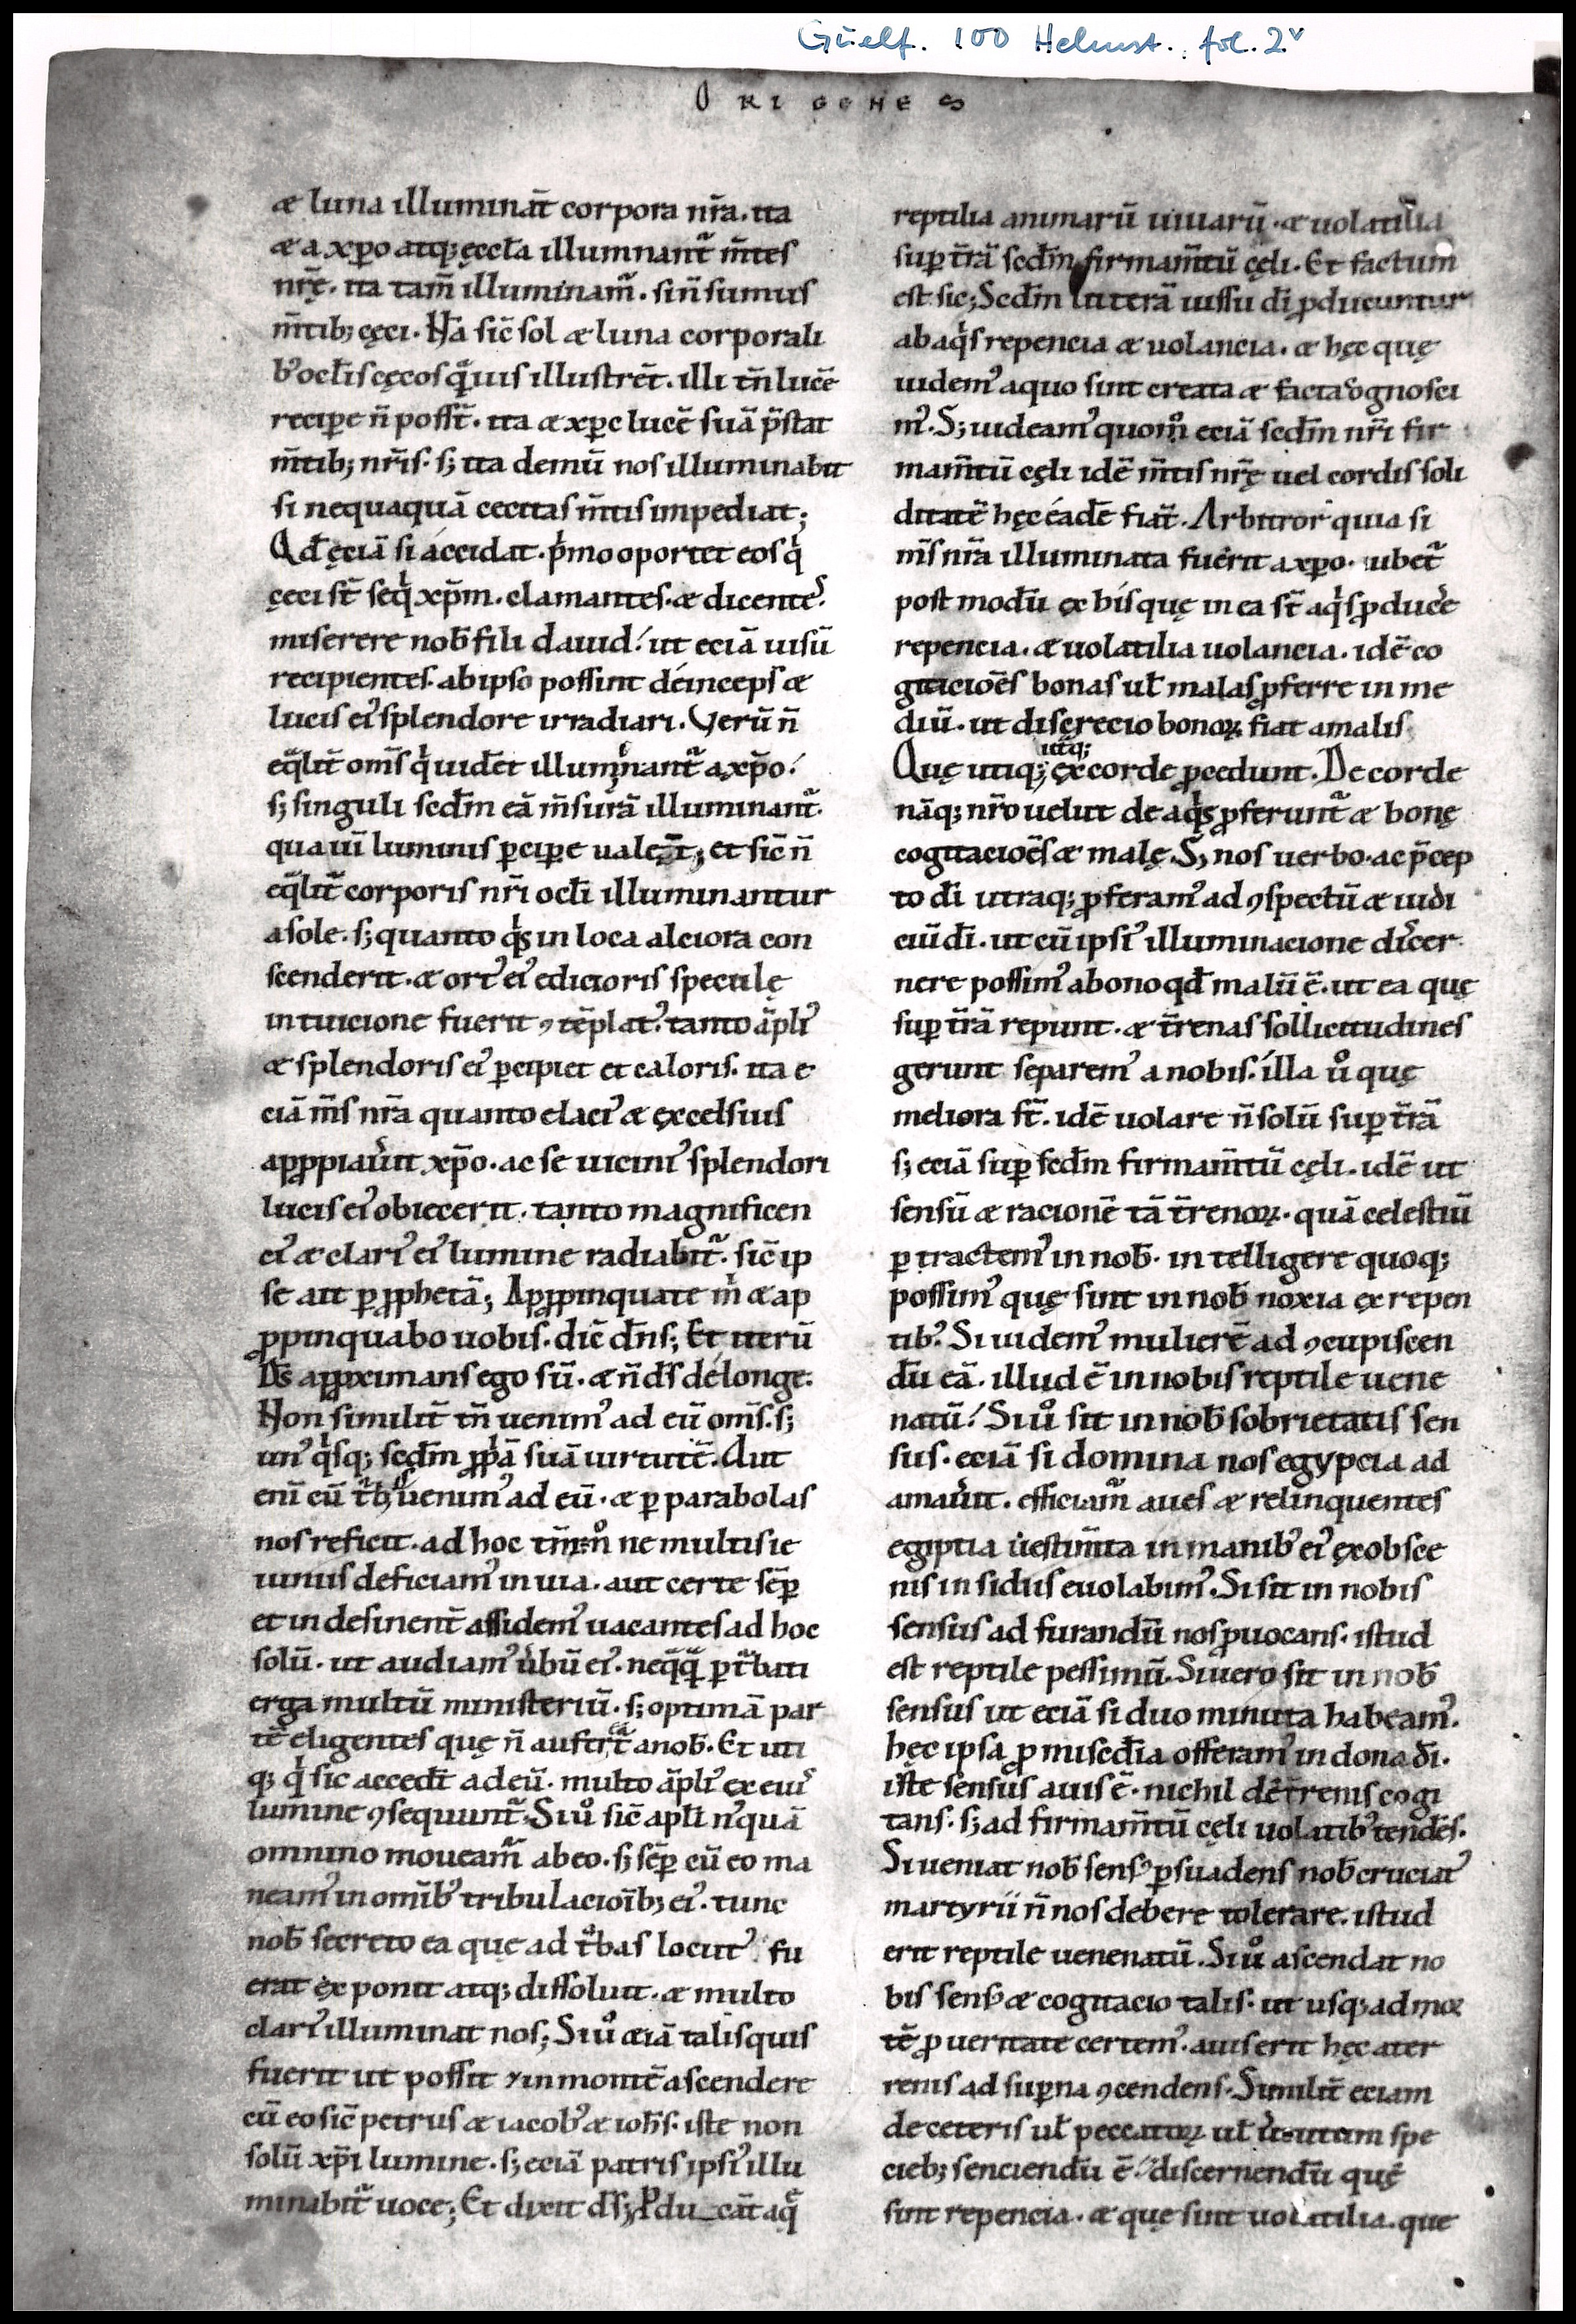 Guelf. 100 Helmst. fol. 2v
ORIGENES
æ luna illuminat̄ corpora nr̄a. ita
æ a xp̄o atq; ęccl̄a illuminant᷑ m̄tes
nr̄ę. ita tam̄ illuminam᷑. si n̄ sumus
m̄tib; cęci. Nā sic̄ sol æ luna corporali
b᾽ ocl̄is cęcos q̄uis illustrēt. illi tn̄ lucē
recipe n̄ poss̄t. ita æ xp̄c lucē suā p̄stat
m̄tib; nr̄is. s; ita demū nos illuminabit
si nequaquā cecitas m̄tis impediat;
Qd̄ ęciā si accidat. p͛mo oportet eos q͛
ceci st̄ seq͛ xp̄m. clamantes. æ dicente᾽.
miserere nob̄ fili dauid! ut eciā uisū
recipientes. ab ipso possint deinceps æ
lucis ei᾽ splendore irradiari. Verū n̄
eq̄lit̄ om̄s q͛ uidēt illuminant᷑ a xp̄o!
s; singuli scd̄m eā m̄surā illuminant᷑.
qua uim̄ luminis p̱cipe ualent; et sic̄ n̄
eq̄lit̄ corporis nr̄i ocl̄i illuminantur
a sole. s; quanto q͛s in loca alciora con
scenderit. æ ort᾽ ei᾽ edicioris speculę
intuicione fuerit ꝯtēplat᾽. tanto āpli᾽
æ splendoris ei᾽ p̱cipiet et caloris. ita e
ciā m̄s nr̄a quanto elaci᾽ æ excelsius
apꝓpiauit xp̄o. ac se uicini᾽ splendori
lucis ei᾽ obiecerit. tanto magnificen
ci᾽ æ clari᾽ ei᾽ lumine radiabit᷑. sic̄ ip
se ait ꝑ ꝓphetā; Apꝓpinquate m͛ æ ap
ꝓpinquabo uobis. dic̄ dn̄s; Et iterū
Ds̄ apꝓximans ego sū. æ n̄ ds̄ de longe.
Non similit̄ tn̄ uenim᾽ ad eū om̄s. s;
un᾽ q͛sq; scd̄m ꝓp͛ā suā uirtutē. Aut
enī cū t᷑bis uenim᾽ ad eū. æ ꝑ parabolas
nos reficit. ad hoc tm̄m̊ ne multis ie
iuniis deficiam᾽ in uia. aut certe sēꝑ
et indesinent̄ assidem᾽ uacantes ad hoc
solū. ut audiam᾽ u͛bū ei᾽. neq̄q̄ ꝑt᷑bati
erga multū ministeriū. s; optimā par
tē eligentes quę n̄ aufert᷑ a nob̄. Et uti
q; q͛ sic accedt̄ ad eū. multo āpli᾽ ex eius
lumine ꝯsequunt᷑. Siů sic̄ apl̄i n᾽quā
omnino moueam᷑ ab eo. s; sēꝑ cū eo ma
neam᾽ in omīb᾽ tribulacioīb; ei᾽. tunc
nob̄ secreto ea que ad t᷑bas locut᾽ fu
erat exponit atq; dissoluit. æ multo
clari᾽ illuminat nos; Siů æciā talis quis
fuerit ut possit ⁊ in montē ascendere
cū eo sic̄ petrus æ iacob᾽ æ ioh̄s. iste non
solū xp̄i lumine. s; eciā patris ipsi᾽ illu
minabit᷑ uoce; Et dixit ds̄; Ꝓducāt aq̄
reptilia animarū uiuarū. æ uolatilia
suꝑ tr̄ā scd̄m firmam̄tū cęli. Et factum
est sic; Scd̄m litterā iussu dī ꝓducuntur
ab aq͛s repencia æ uolancia. æ hęc quę
uidem᾽ a quo sint creata æ facta ꝯgnosci
m᾽. S; uideam᾽ quom̊ eciā scd̄m nr̄i fir
mam̄tū cęli idē m̄tis nr̄ę uel cordis soli
ditatē hęc eadē fiāt. Arbitror quia si
m̄s nr̄a illuminata fuerit a xp̄o. iubet᷑
post modū ex his quę in ea st̄ aq͛s ꝓduce͛
repencia. æ uolatilia uolancia. idē co
gitacioēs bonas ul̄ malas ꝓferre in me
diū. ut discrecio bonoꝝ fiat a malis
utiq;
Quę utiq; ex corde ꝓcedunt. De corde
nāq; nr̄o uelut de aq͛s ꝓferunt᷑ æ bonę
cogitacioēs æ malę. S; nos uerbo. ac p̄cep
to dī utraq; ꝓferam᾽ ad ꝯspectū æ iudi
ciū dī. ut cū ipsi᾽ illuminacione di͛cer
nere possim᾽ a bono qd̄ malū ē. ut ea quę
suꝑ tr̄ā repunt. æ tr̄enas sollicitudines
gerunt separem᾽ a nobis. illa ů quę
meliora st̄. idē uolare n̄ solū suꝑ tr̄ā
s; eciā suꝑ scd̄m firmam̄tū cęli. idē ut
sensū æ racionē tā tr̄enoꝝ. quā celestiū
ꝑtractem᾽ in nob̄. intelligere quoq;
possim᾽ quę sint in nob̄ noxia ex repen
tib᾽. Si uidem᾽ mulierē ad ꝯcupiscen
dū eā. illud ē in nobis reptile uene
natū! Siů sit in nob̄ sobrietatis sen
sus. eciā si domina nos egypcia ad
amauit. efficiam᷑ aues æ relinquentes
egiptia uestim̄ta in manib᾽ ei᾽ ex obsce
nis insidiis euolabim᾽. Si sit in nobis
sensus ad furandū nos ꝓuocans. istud
est reptile pessimū. Si uero sit in nob̄
sensus ut eciā si duo minuta habeam᾽.
hęc ipsa ꝓ misc̄dia offeram᾽ in dona dī.
iste sensus auis ē. nichil de tr̄enis cogi
tans. s; ad firmam̄tū cęli uolatib᾽ tendēs.
Si ueniat nob̄ sens᾽ ꝑsuadens nob̄ cruciat᾽
martyrii n̄ nos debere tolerare. istud
erit reptile uenenatū. Siů ascendat no
bis sens᾽ æ cogitacio talis. ut usq; ad mor
tē ꝓ ueritate certem᾽. auis erit hęc a ter
renis ad suꝑna ꝯcendens. Similit̄ eciam
de ceteris ul̄ peccatoꝝ ul̄ u͛tutum spe
cieb; senciendū ē. discernendū quę
sint repencia. æ quę sint uolatilia. que